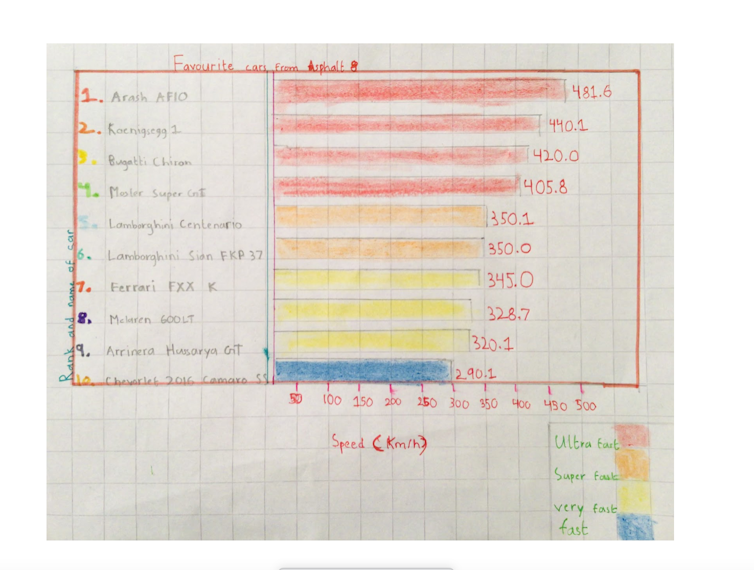 Favourite cars From Asphalt 8
1. Arash AF10 481.6
2. Koenigsegg 1 440.1
3. Bugatti Chiron 420.0
4. Mosler Super GT 405.8
5. Lamborghini Centenario 350.1
6. Lamborghini Sian FKP 37 350.0
7. Ferrari FXX K 345.0
8. Mclaren 600LT 328.7
9. Arrinera Hussarya GT 320.1
10. Chevorlet 2016 Camaro SS 290.1
Rank and name of car
50 100 150 200 250 300 350 400 450 500
Speed (Km/h)
Ultra fast
Super fast
very fast
fast